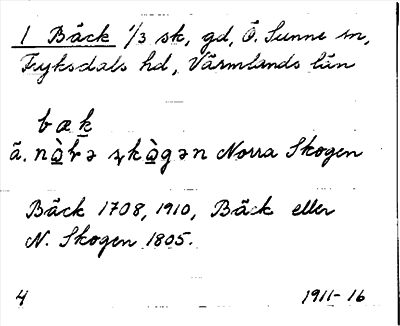 1 Bäck 1/3 sk, gd, Ö. Sunne sn,
Fryksdals hd, Värmlands län
bæk
ä. nòrə skògən Norra Skogen
Bäck 1708, 1910, Bäck eller
N. Skogen 1805.
4 1911-16